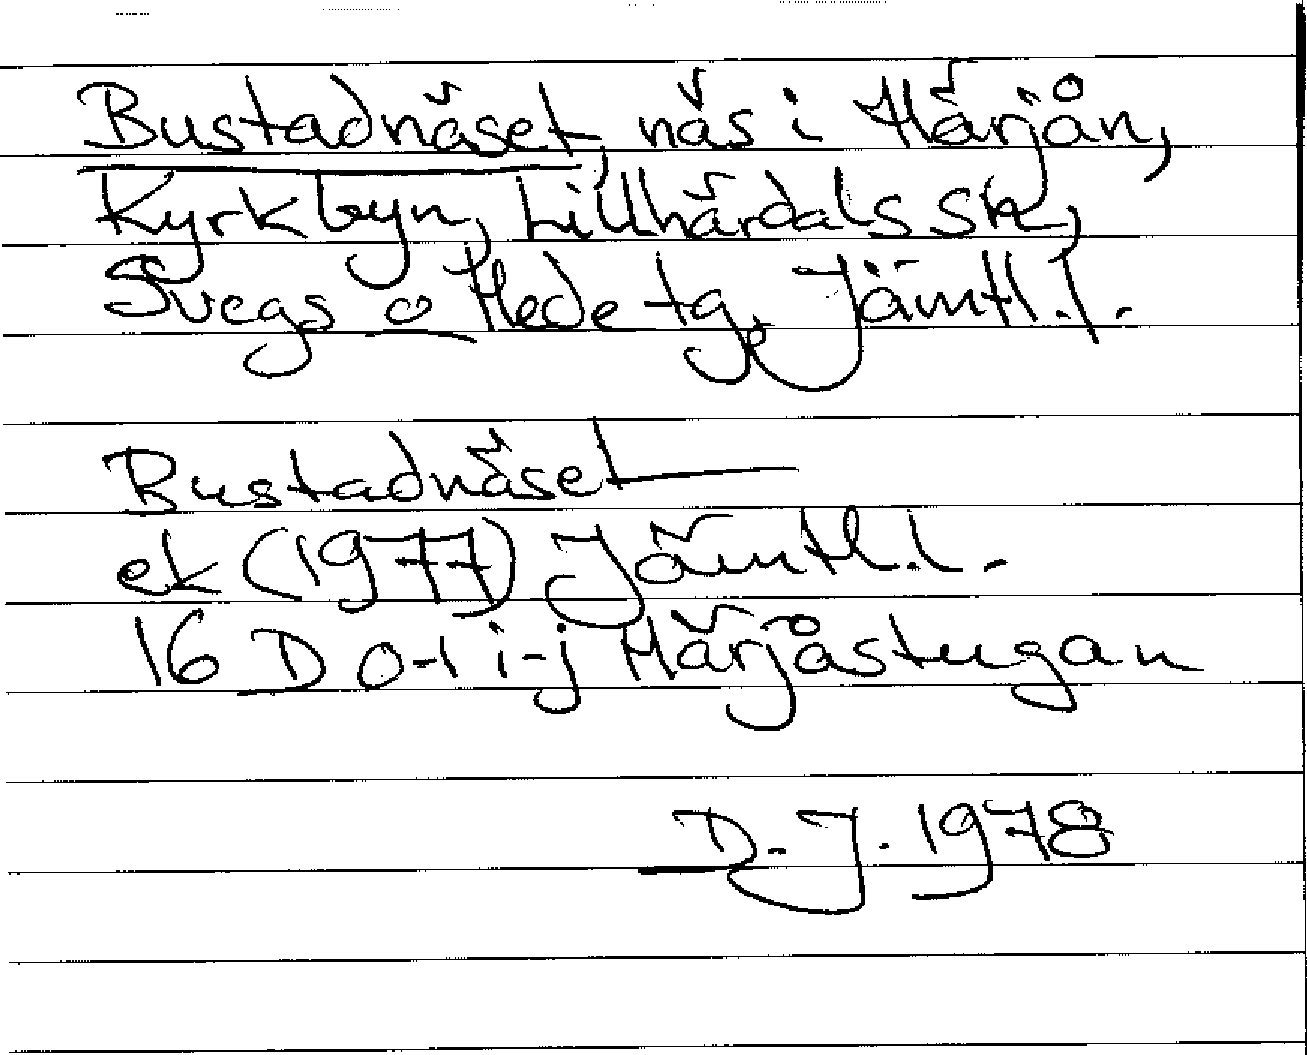 Bustadnäset, näs i Härjån,
Kyrkbyn, Lillhärdals sn,
Svegs o Hede tg, Jämtl.l.
Bustadnäset
ek (1977) Jämtl.l.
16 D 0-1 i-j Härjåstugan
D.J. 1978